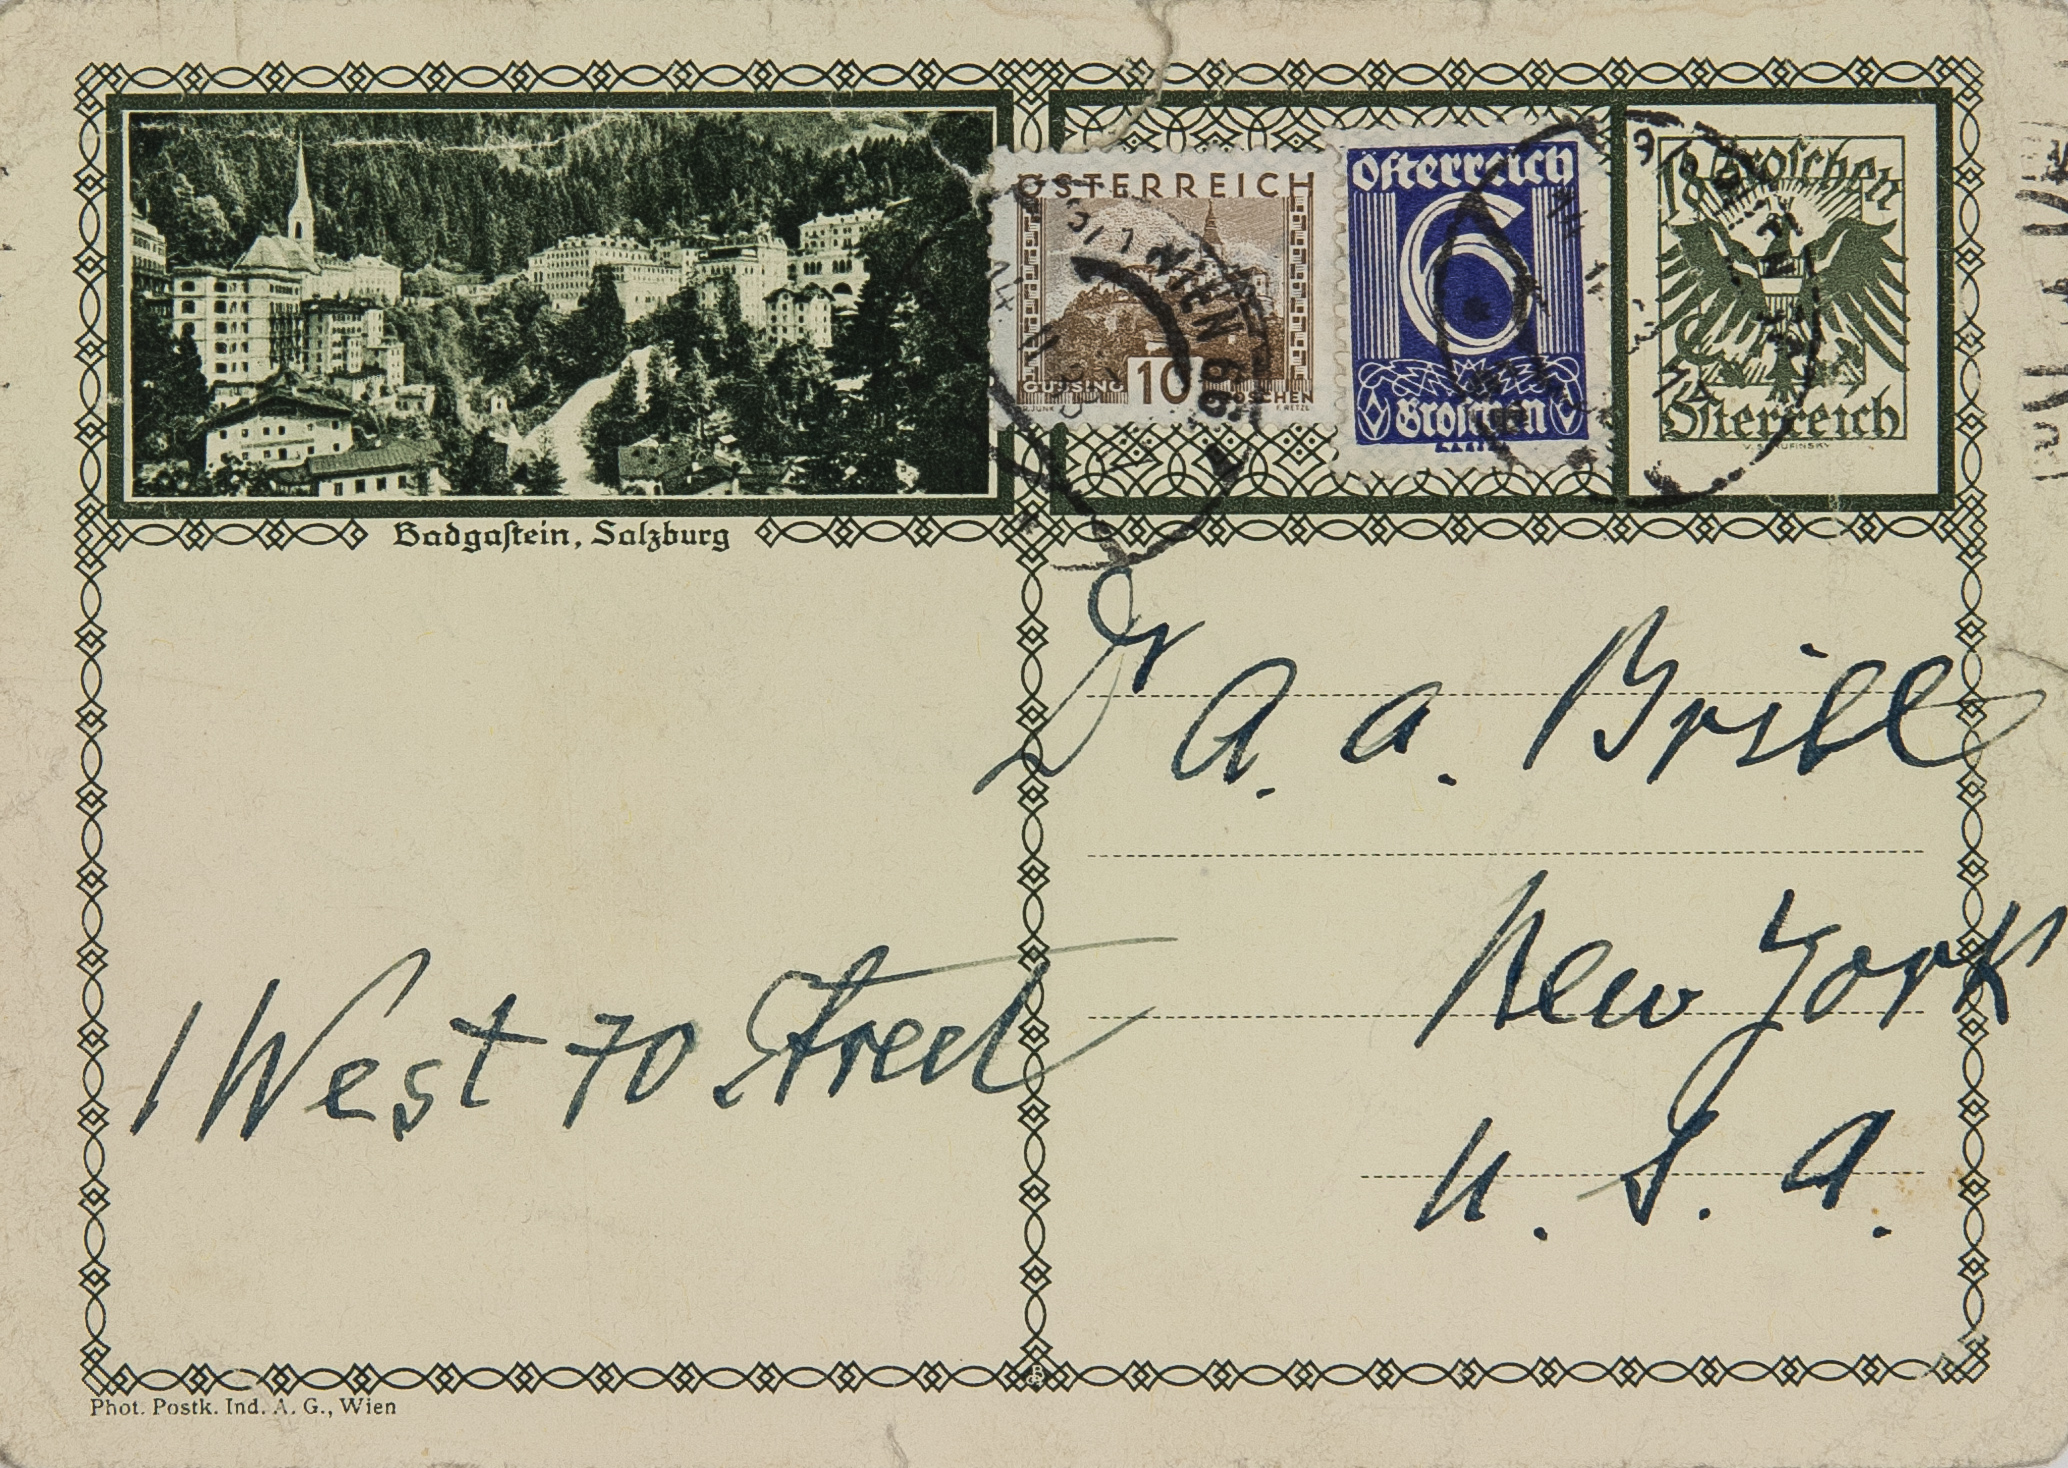 ÖSTERREICH
GÜSSING 10 GROSCHEN
R. JUNK F. RETZL
WIEN 66
Österreich
6
Groschen
18 Groschen
Österreich
Badgastein, Salzburg
Dr A. A. Brill
New York
U. S. A.
1 West 70 Street
Phot. Postk. Ind. A. G., Wien